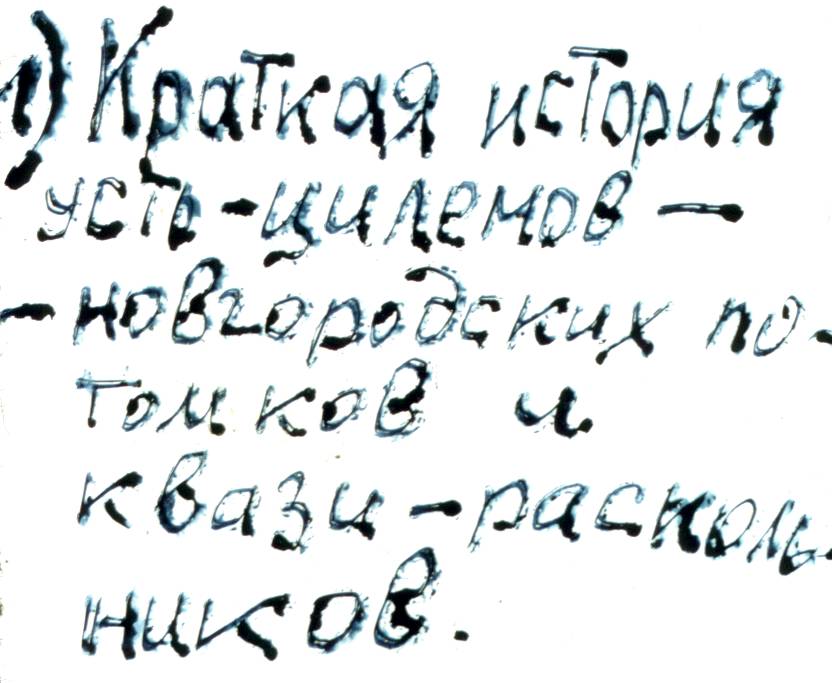 1) Краткая история
усть-цилемов –
- новгородских по-
томков и
квази-расколь-
ников.